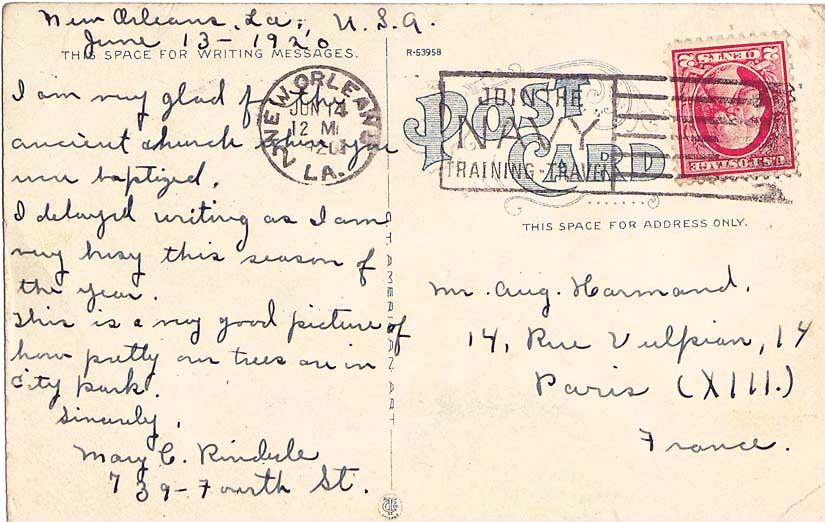 New Orleans, La., U.S.A.
June 13-1920
THIS SPACE FOR WRITING MESSAGES.
I am very glad for the
ancient church where you
were baptized.
I delayed writing as I am
very busy this season of
the year.
This is a very good picture of
how pretty our trees are in
City Park.
Sincerely,
Mary C.
739-Fourth St.
NEW ORLEANS
JUN 14
12 M
LA.
R-53958
POST CARD
JOIN THE
NAVY
TRAINING-TRAVEL
U.S. POSTAGE
CENTS
THIS SPACE FOR ADDRESS ONLY.
Mr. Aug. Harmand.
14, Rue Vulpian, 14
Paris (XIII.)
France.
AMERICAN ART